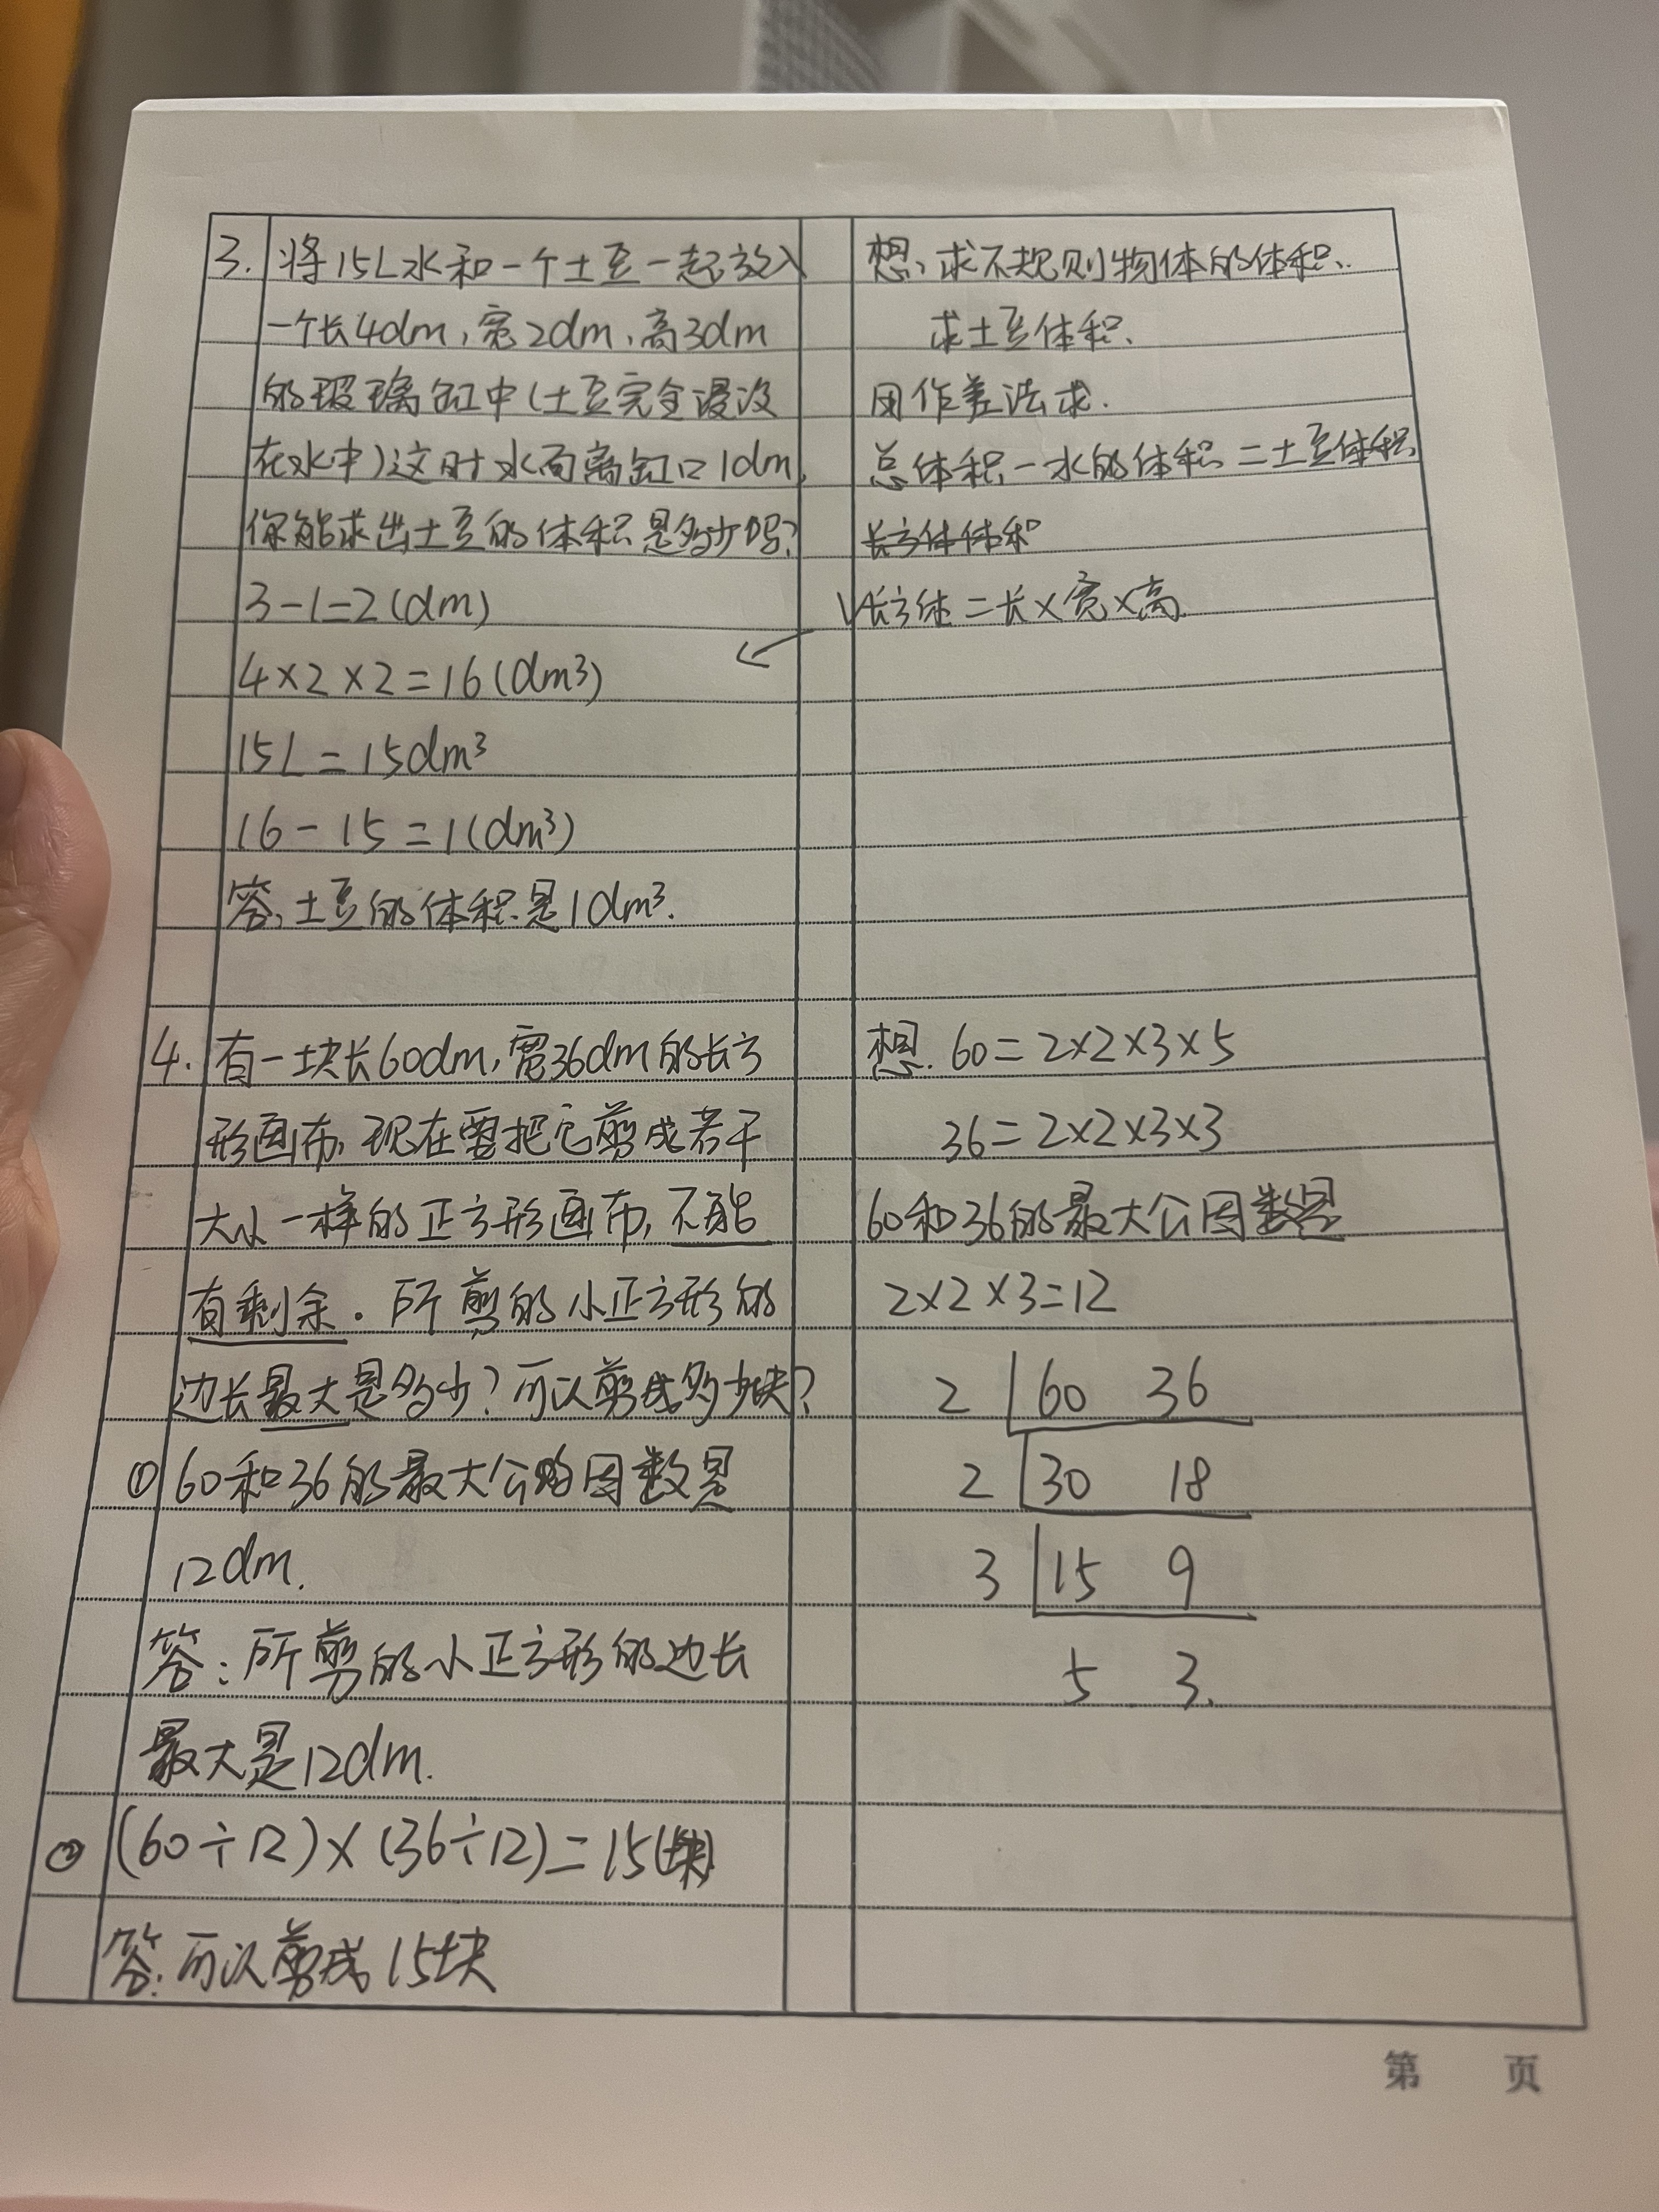 3. 将15L水和一个土豆一起放入
一个长4dm,宽2dm,高3dm
的玻璃缸中(土豆完全浸没
在水中)这时水面离缸口1dm,
你能求出土豆的体积是多少吗?
3-1=2(dm)
4×2×2=16(dm³)
15L=15dm³
16-15=1(dm³)
答,土豆的体积是1dm³.
想,求不规则物体的体积,
求土豆体积,
用作差法求.
总体积-水的体积=土豆体积
长方体体积
V长方体=长×宽×高
4. 有一块长60dm,宽36dm的长方
形画布,现在要把它剪成若干
大小一样的正方形画布,不能
有剩余.所剪的小正方形的
边长最大是多少?可以剪成多少块?
① 60和36的最大公因数是
12dm.
答:所剪的小正方形的边长
最大是12dm.
② (60÷12)×(36÷12)=15(块)
答:可以剪成15块
想. 60=2×2×3×5
36=2×2×3×3
60和36的最大公因数是
2×2×3=12
2 60 36
2 30 18
3 15 9
5 3.
第 页